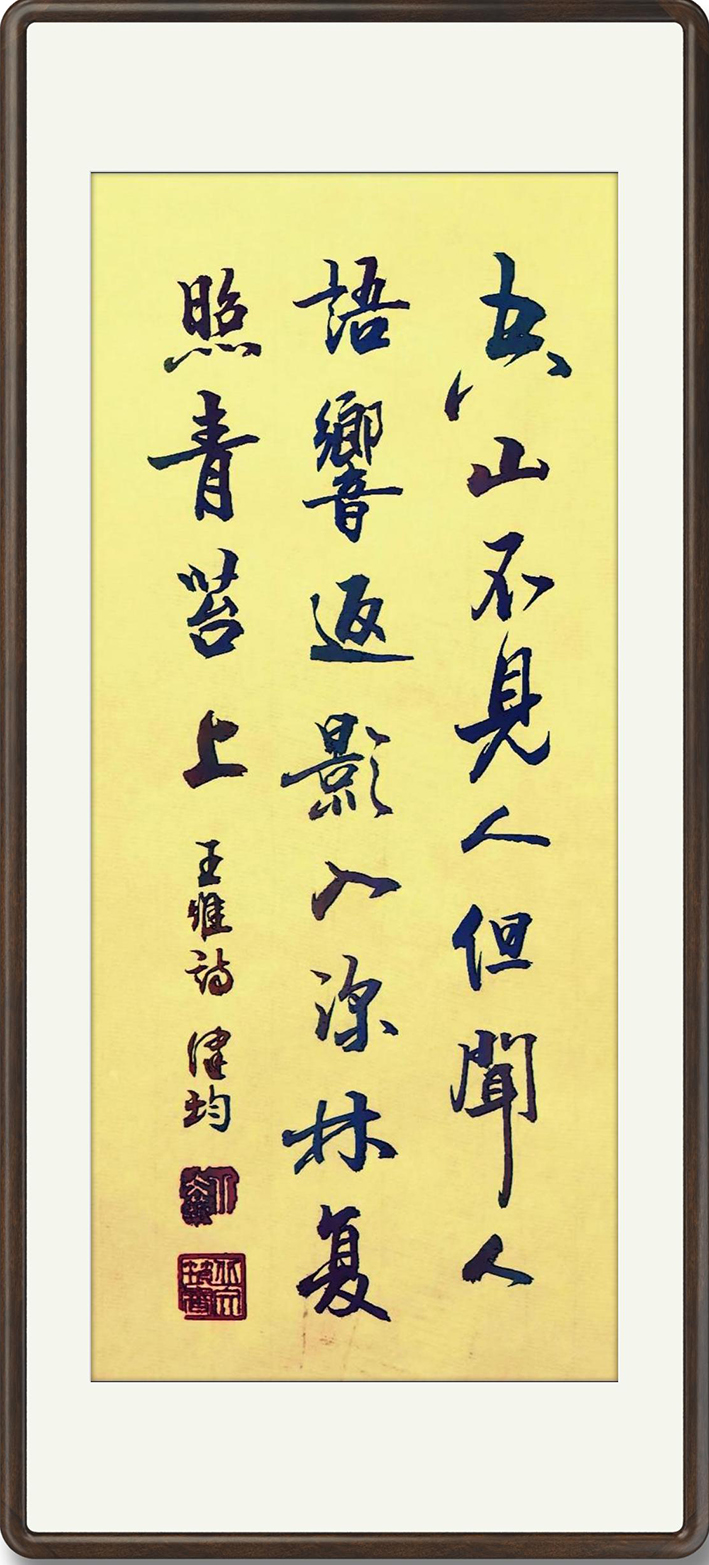 空山不見人但聞人
語響返影入深林复
照青苔上 王維詩 均